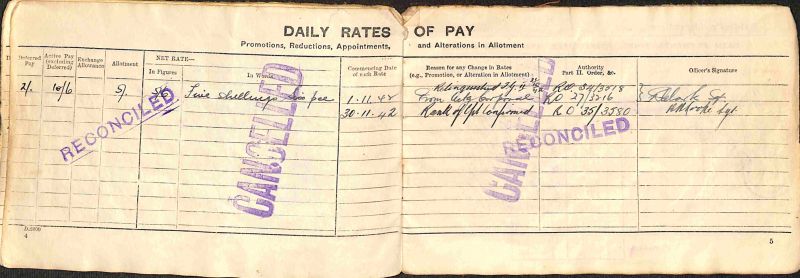 DAILY RATES OF PAY
Promotions, Reductions, Appointments, and Alterations in Allotment
Deferred Pay
Active Pay (excluding Deferred)
Exchange Allowance
Allotment
NET RATE—
In Figures
In Words
Commencing Date of each Rate
Reason for any Change in Rates
(e.g., Promotion, or Alteration in Allotment)
Authority
Part II. Order, &c.
Officer's Signature
2/. 10/6 5/. 5/6 Five shillings six pce 1.11.42
Relinquished R.O. 34/3518
from Actg Corporal R.O 27/3216
30.11.42 Rank of Cpl Confirmed R.O 35/3580
Sgt
RECONCILED
CANCELLED
CANCELLED
RECONCILED
D.5800
4
5